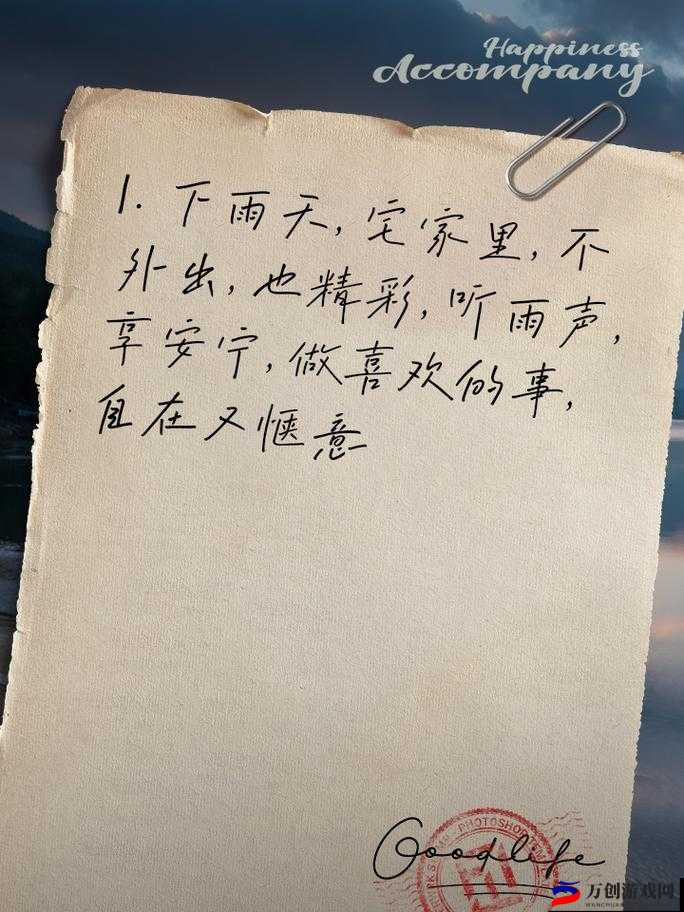 Happiness
Accompany
1. 下雨天,宅家里,不
外出,也精彩,听雨声,
享安宁,做喜欢的事,
自在又惬意
PHOTOSHOP
Goodlife
万创游戏网